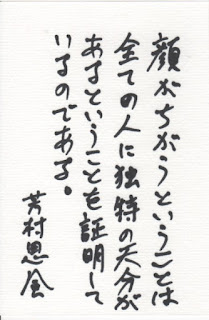 顔がちがうということは
全ての人に独特の天分が
あるということを証明して
いるのである。
芳村思風